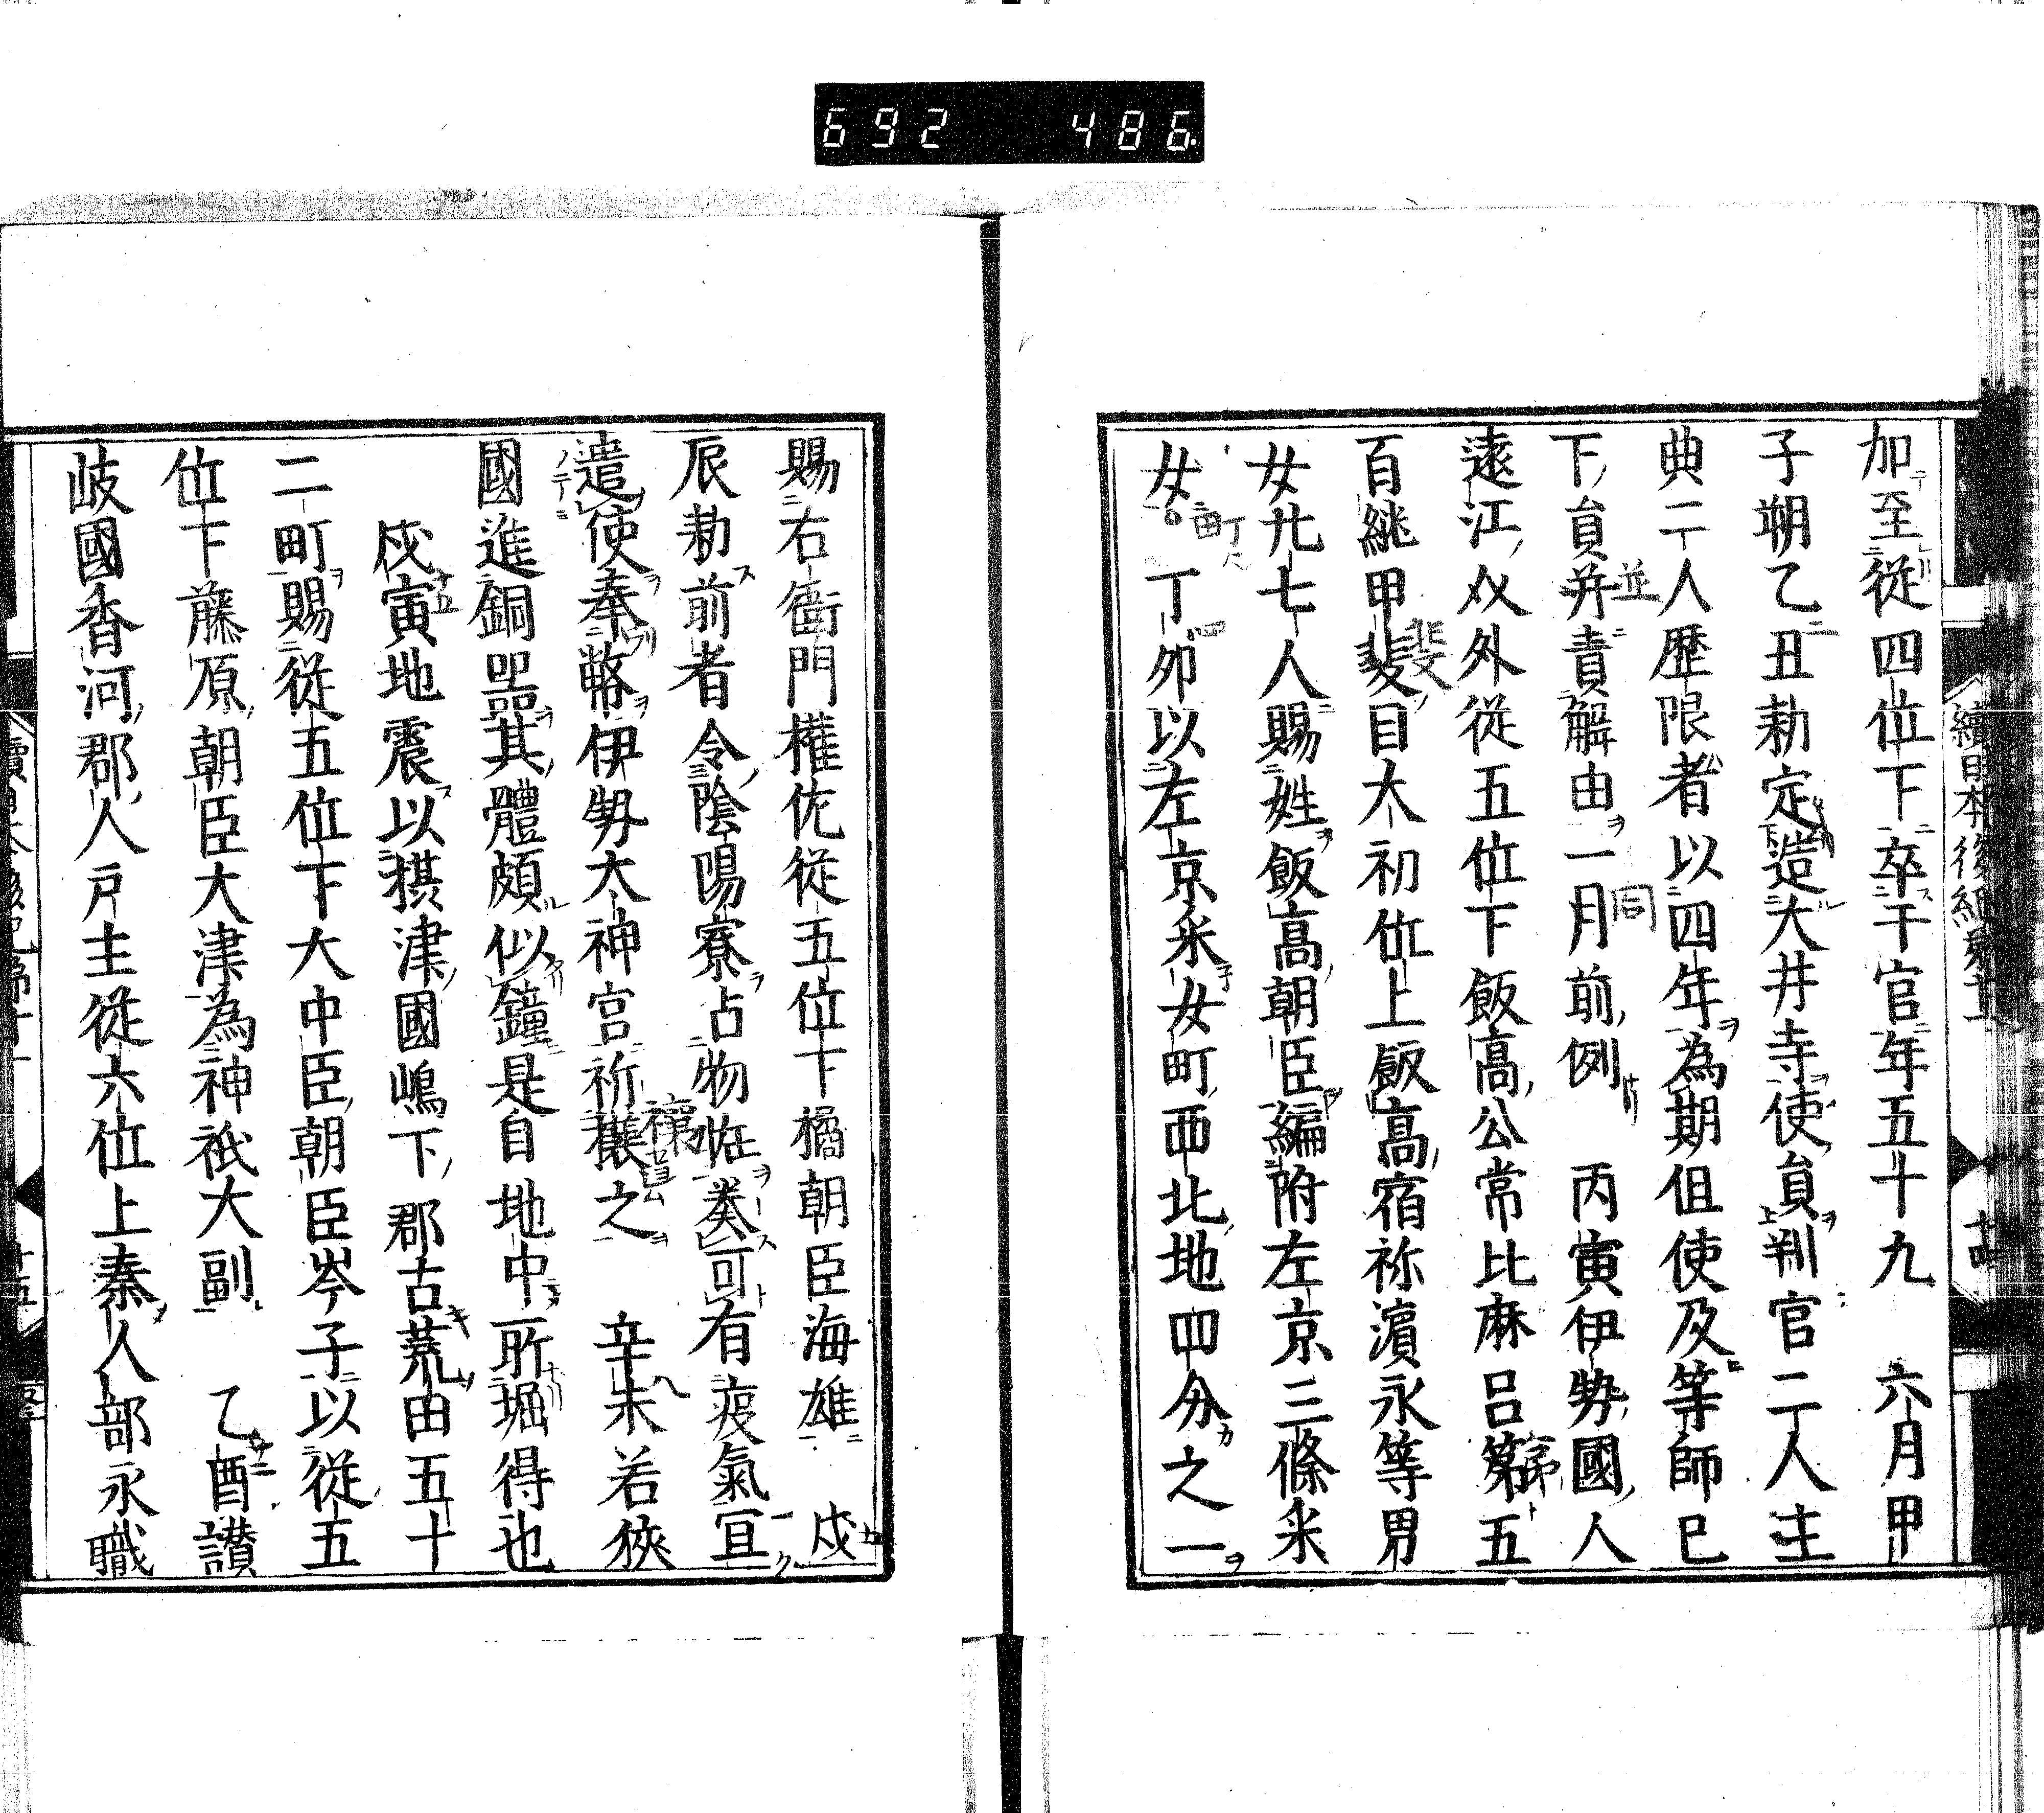 692 486
加至從四位下卒于官年五十九 六月甲
子朔乙丑勅定造大井寺使員判官二人主
典二人歷限者以四年為期但使及等師已
下員并責解由一同月前例 丙寅伊勢國人
遠江介外從五位下飯高公常比麻呂第五
百繼甲斐目大初位上飯高宿祢濱永等男
女九七人賜姓飯高朝臣編附左京三條采
女町 丁卯以左京采女町西北地四分之一
賜右衛門權佐從五位下橘朝臣海雄 戊
辰勅前者令陰陽寮占物恠奏可有疫氣宜
遣使奉幣伊勢大神宮祈禳之 辛未若狹
國進銅器其體頗似鐘是自地中所堀得也
戊寅地震以攝津國嶋下郡古荒田五十
二町賜從五位下大中臣朝臣岑子以從五
位下藤原朝臣大津為神祇大副 乙酉讃
岐國香河郡人戶主從六位上秦人部永職